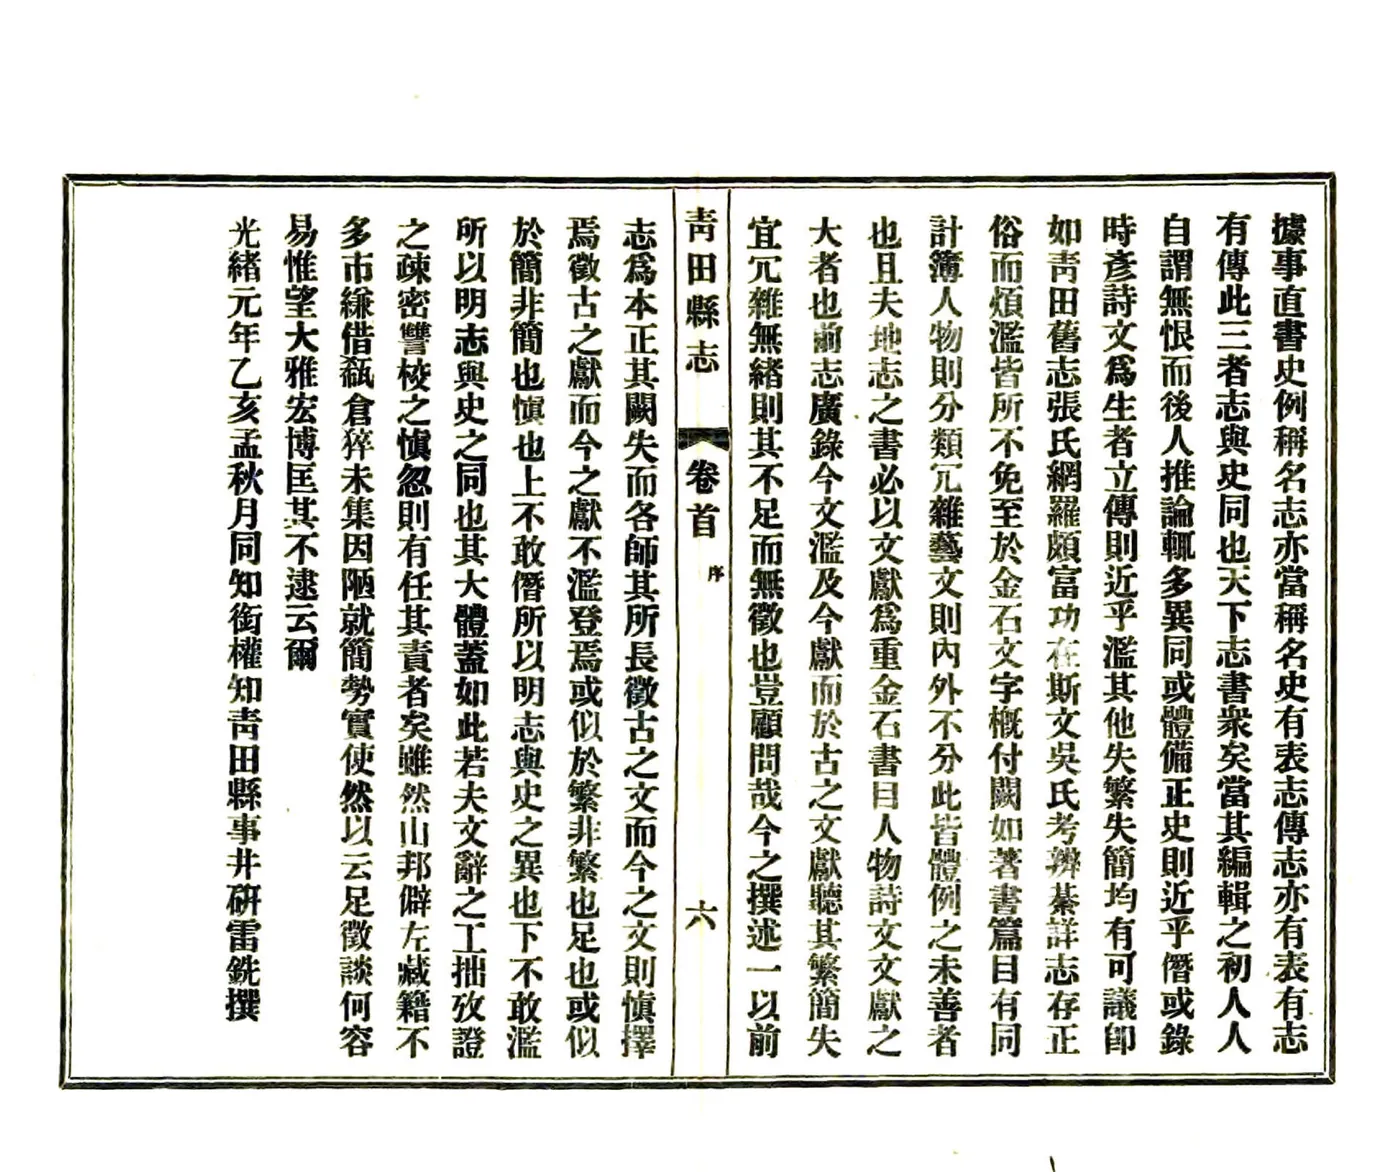 據事直書史例稱名志亦當稱名史有表志傳志亦有表有志
有傳此三者志與史同也天下志書衆矣當其編輯之初人人
自謂無恨而後人推論輒多異同或體備正史則近乎僭或錄
時彥詩文爲生者立傳則近乎濫其他失繁失簡均有可議卽
如靑田舊志張氏網羅頗富功在斯文吳氏考辨綦詳志存正
俗而煩濫皆所不免至於金石文字槪付闕如著書篇目有同
計簿人物則分類冗雜藝文則內外不分此皆體例之未善者
也且夫地志之書必以文獻爲重金石書目人物詩文文獻之
大者也前志廣錄今文濫及今獻而於古之文獻聽其繁簡失
宜冗雜無緖則其不足而無徵也豈顧問哉今之撰述一以前
靑田縣志
卷首
序
六
志爲本正其闕失而各師其所長徵古之文而今之文則愼擇
焉徵古之獻而今之獻不濫登焉或似於繁非繁也足也或似
於簡非簡也愼也上不敢僭所以明志與史之異也下不敢濫
所以明志與史之同也其大體蓋如此若夫文辭之工拙攷證
之疎密讐校之愼忽則有任其責者矣雖然山邦僻左藏籍不
多市縑借瓻倉猝未集因陋就簡勢實使然以云足徵談何容
易惟望大雅宏博匡其不逮云爾
光緖元年乙亥孟秋月同知銜權知靑田縣事井硏雷銑撰